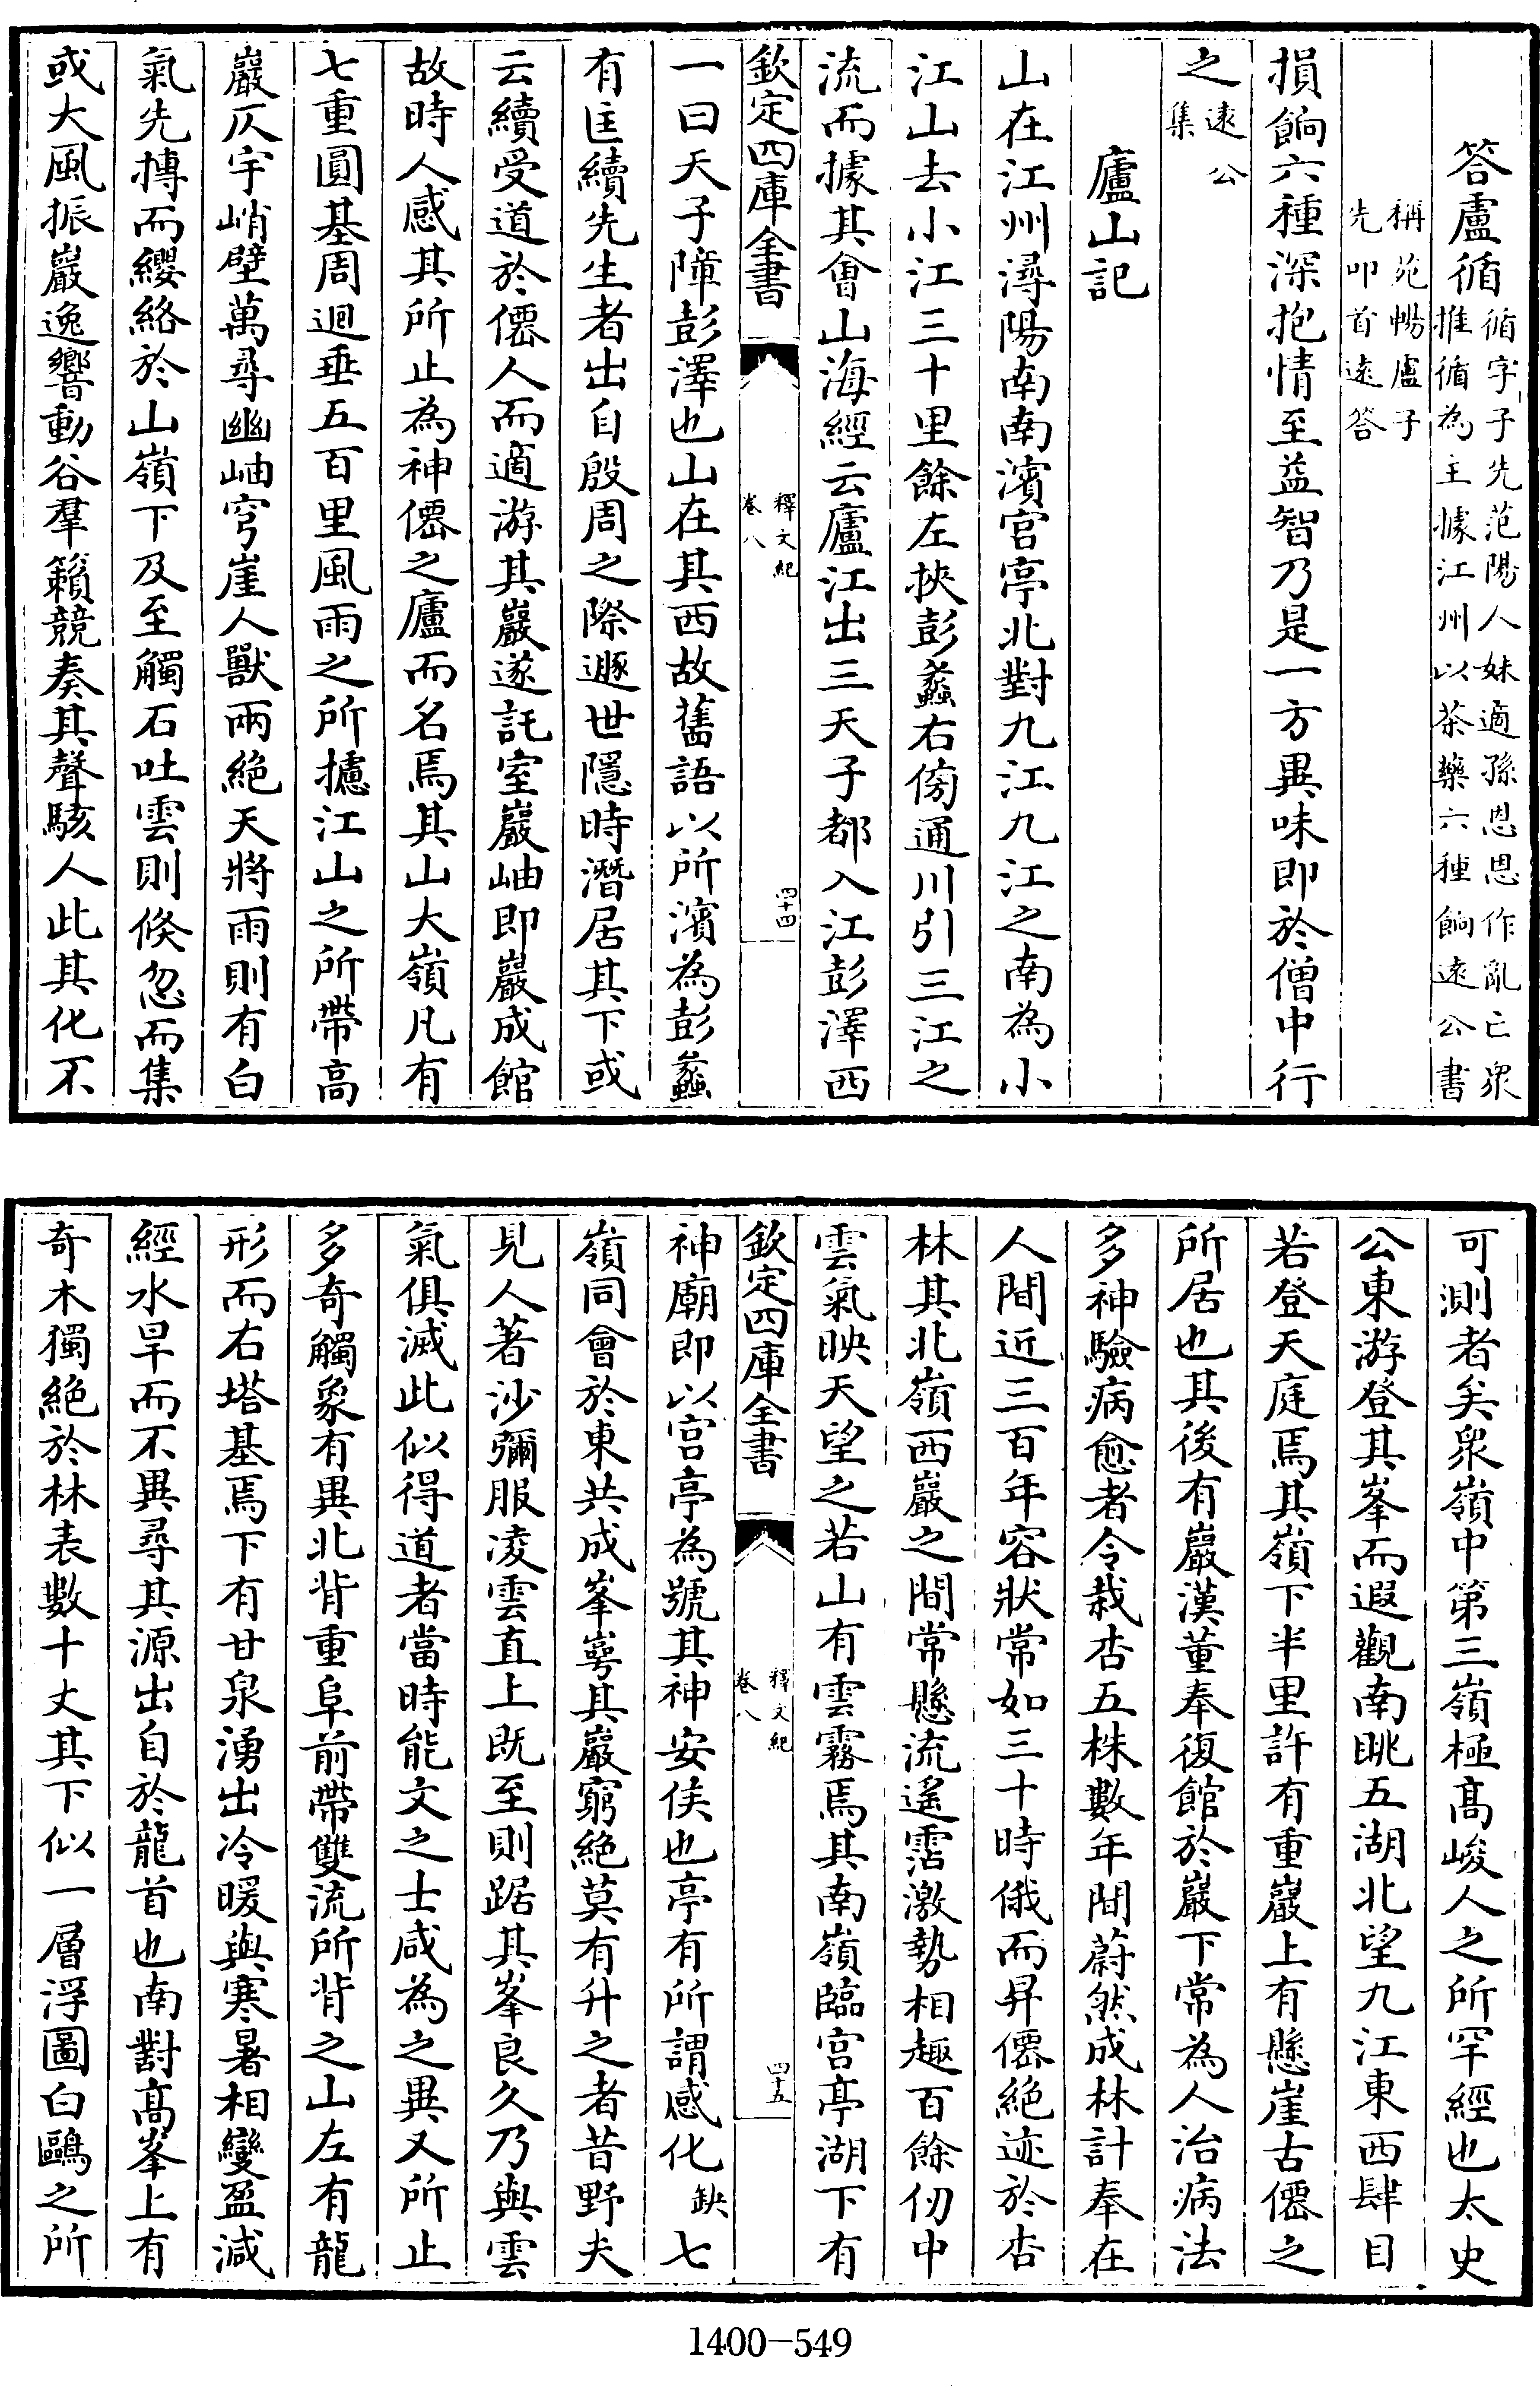 答盧循循字子先范陽人妹適孫恩恩作亂亡衆推循為主據江州以茶藥六種餉遠公書
稱苑暢盧子先叩首遠答
損餉六種深抱情至益智乃是一方異味即於僧中行
之遠公集
廬山記
山在江州潯陽南南濱宮亭北對九江九江之南為小
江山去小江三十里餘左挾彭蠡右傍通川引三江之
流而據其會山海經云廬江出三天子都入江彭澤西
欽定四庫全書
釋文紀
卷八
四十四
一曰天子障彭澤也山在其西故舊語以所濱為彭蠡
有匡續先生者出自殷周之際遯世隱時潛居其下或
云續受道於僊人而適游其巖遂託室巖岫即巖成館
故時人感其所止為神僊之廬而名焉其山大嶺凡有
七重圓基周迴垂五百里風雨之所攄江山之所帶高
巖仄宇峭壁萬尋幽岫穹崖人獸兩絶天將雨則有白
氣先摶而纓絡於山嶺下及至觸石吐雲則倏忽而集
或大風振巖逸響動谷羣籟競奏其聲駭人此其化不
可測者矣衆嶺中第三嶺極髙峻人之所罕經也太史
公東游登其峯而遐觀南眺五湖北望九江東西肆目
若登天庭焉其嶺下半里許有重巖上有懸崖古僊之
所居也其後有巖漢董奉復館於巖下常為人治病法
多神驗病愈者令栽杏五株數年間蔚然成林計奉在
人間近三百年容狀常如三十時俄而昇僊絶迹於杏
林其北嶺西巖之間常懸流遙霑激勢相趣百餘仞中
雲氣映天望之若山有雲霧焉其南嶺臨宫亭湖下有
欽定四庫全書
釋文紀
卷八
四十五
神廟即以宫亭為號其神安侯也亭有所謂感化缺七
嶺同會於東共成峯崿其巖窮絶莫有升之者昔野夫
見人著沙彌服凌雲直上既至則踞其峯良久乃與雲
氣俱滅此似得道者當時能文之士咸為之異又所止
多奇觸象有異北背重阜前帶雙流所背之山左有龍
形而右塔基焉下有甘泉湧出冷暖與寒暑相變盈減
經水旱而不異尋其源出自於龍首也南對髙峯上有
奇木獨絶於林表數十丈其下似一層浮圖白鷗之所
1400-549